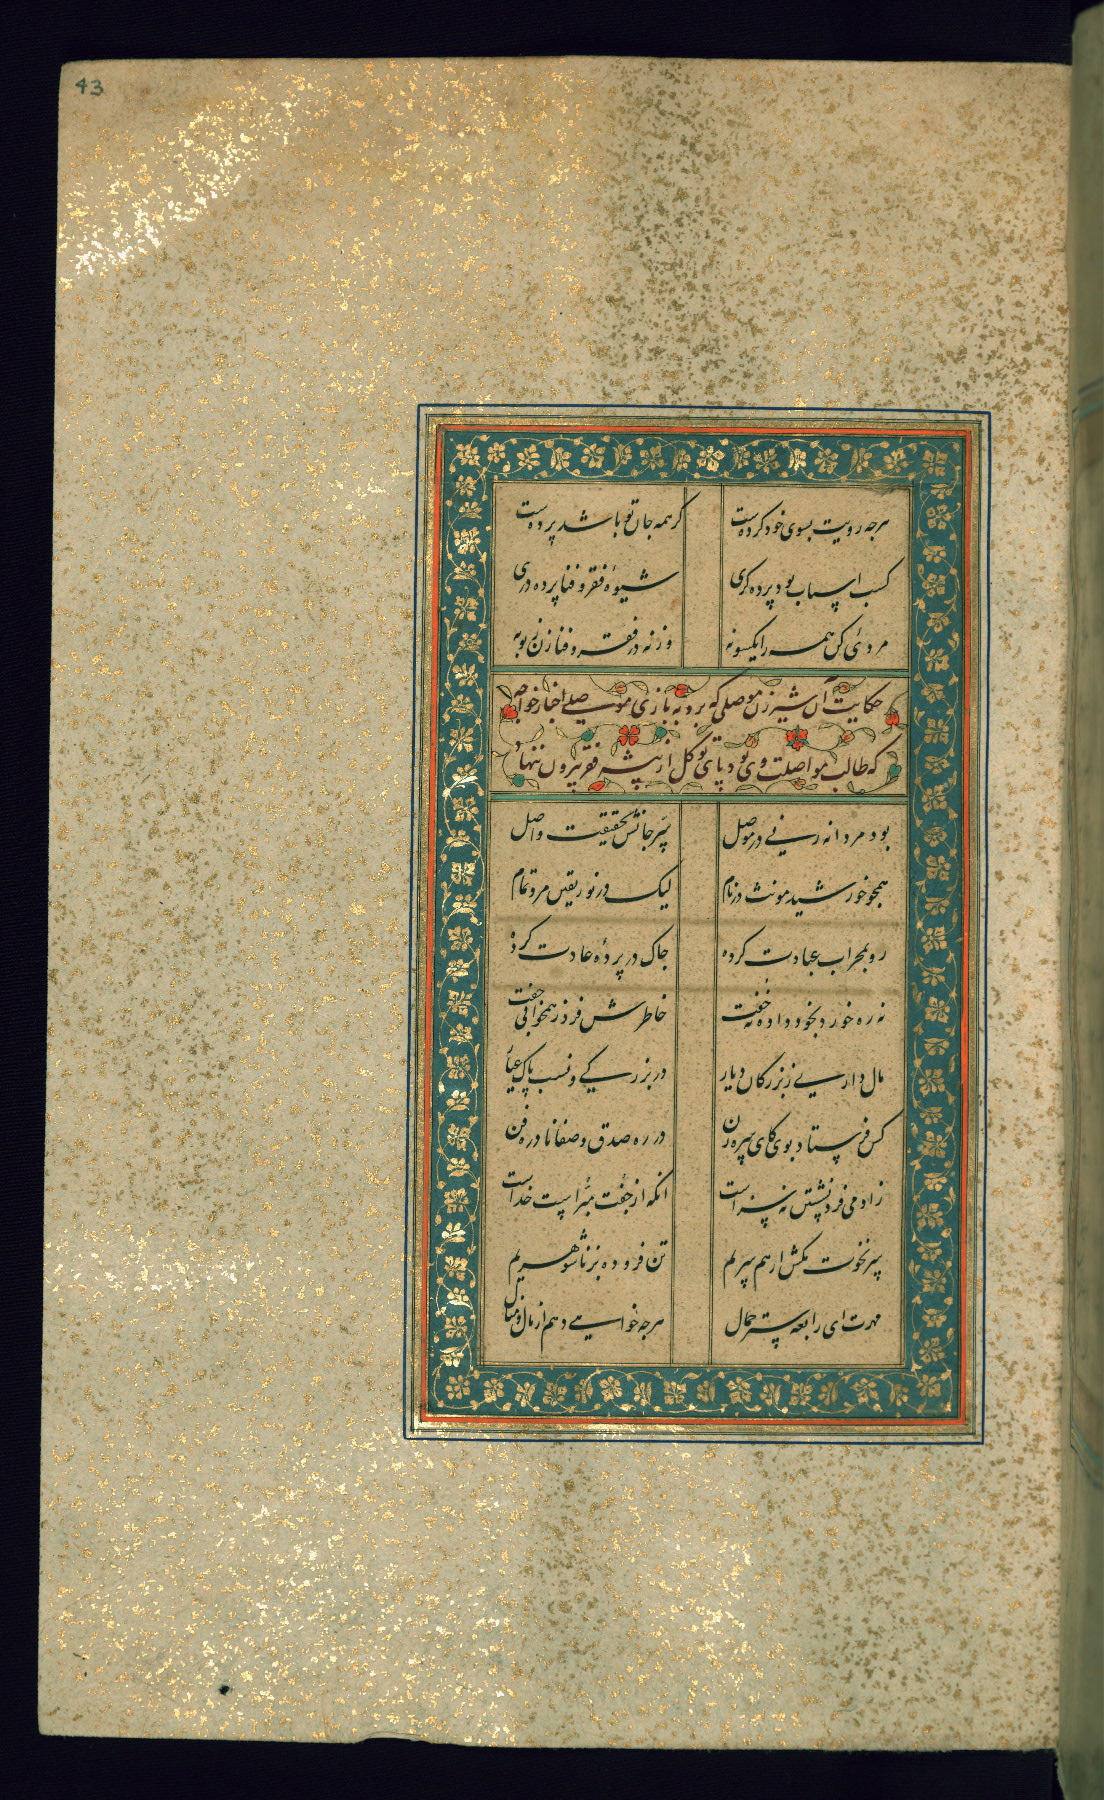 43
هرچه رویت بسوی خود کردست گر همه جان تو باشد پردست
کسب اسباب بود پرده گری شیوهٔ فقر و فنا پرده دری
مرد ئی کن همه را یکسو نه ورنه در فقر و فنا زن ز تو به
حکایت آن شیرزن موصلی که
که طالب مواصلت وی بود پای توکل از پیشه فقر بیرون ننهاد
بود مردانه زنی در موصل سر جانش بحقیقت واصل
همچو خورشید مونث در نام لیک در نور یقین مرد تمام
رو بمحراب عبادت کرده چاک در پردهٔ عادت کرده
نه ره خورد بخود داده نه خفت خاطرش فرد ز همخوابی جفت
مال داری ز بزرگان دیار در بزرگی و نسب پاک عیار
کس فرستاد بوی کای سره زن در ره صدق و صفا نادره فن
زادمی فرد نشستن نه سزاست انکه از جفت مبراست خداست
سر نخوت مکش از همسریم تن فروده بزناشوهریم
مهرت ای رابعه ستر جمال هرچه خواهی دهم از مال و منال